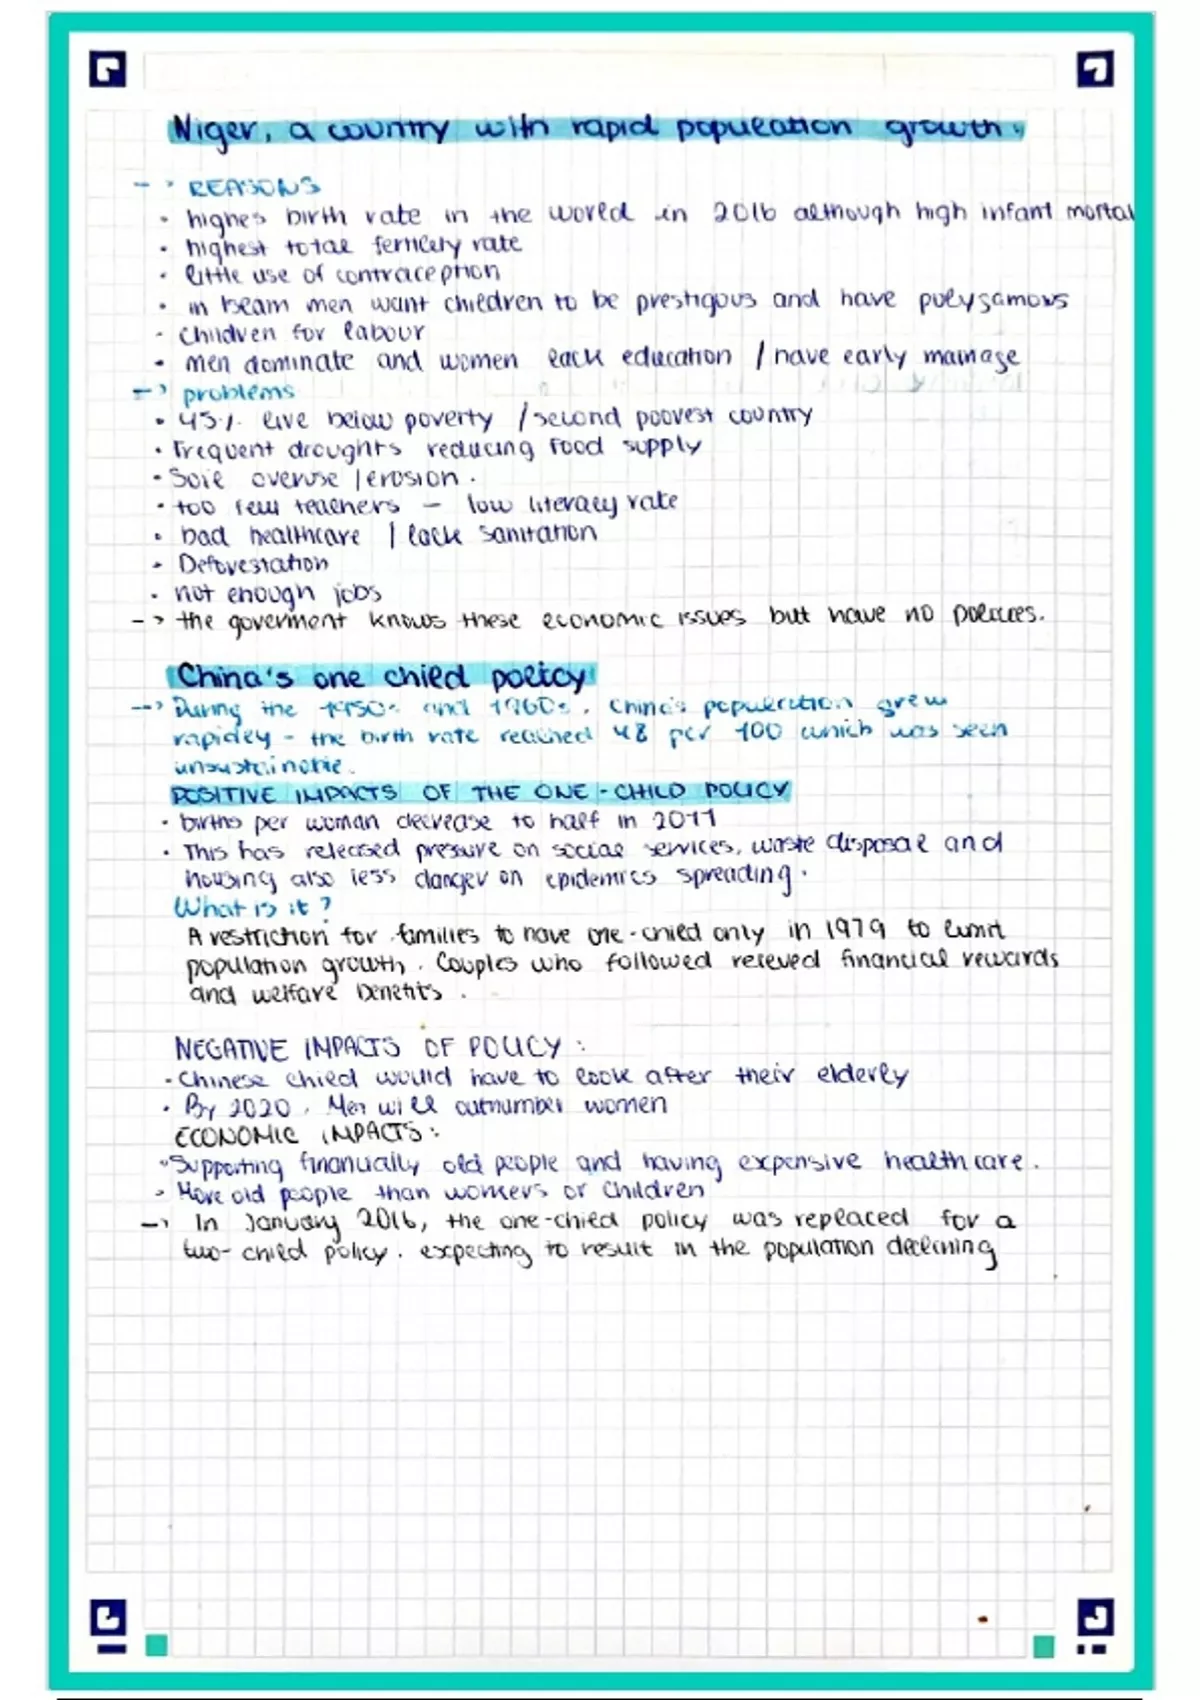 Niger, a country with rapid population growth.
-> REASONS
• highes birth rate in the world in 2016 although high infant mortal
• highest total fertility rate
• little use of contraception
• in beam men want children to be prestigous and have polygamous
• Children for labour
• men dominate and women lack education / have early marriage
-> problems
• 45% live below poverty / second poorest country
• Frequent droughts reducing food supply
• Soil overuse / erosion.
• too few teachers - low literacy rate
• bad healthcare / lack sanitation
• Deforestation
• not enough jobs
-> the goverment knows these economic issues but have no policies.
China's one child policy
-> During the 1950s and 1960s, China's population grew
rapidly - the birth rate reached 48 per 100 which was seen
unsustainable.
POSITIVE IMPACTS OF THE ONE-CHILD POLICY
• births per woman decrease to half in 2011
• This has released pressure on social services, waste disposal and
housing also less danger on epidemics spreading.
What is it?
A restriction for families to have one-child only in 1979 to limit
population growth. Couples who followed receved financial rewards
and welfare benefits.
NEGATIVE IMPACTS OF POLICY:
• Chinese child would have to look after their elderly
• By 2020, Men will outnumber women
ECONOMIC IMPACTS:
• Supporting financially old people and having expensive health care.
• More old people than workers or children
-> In January 2016, the one-child policy was replaced for a
two-child policy. expecting to result in the population declining